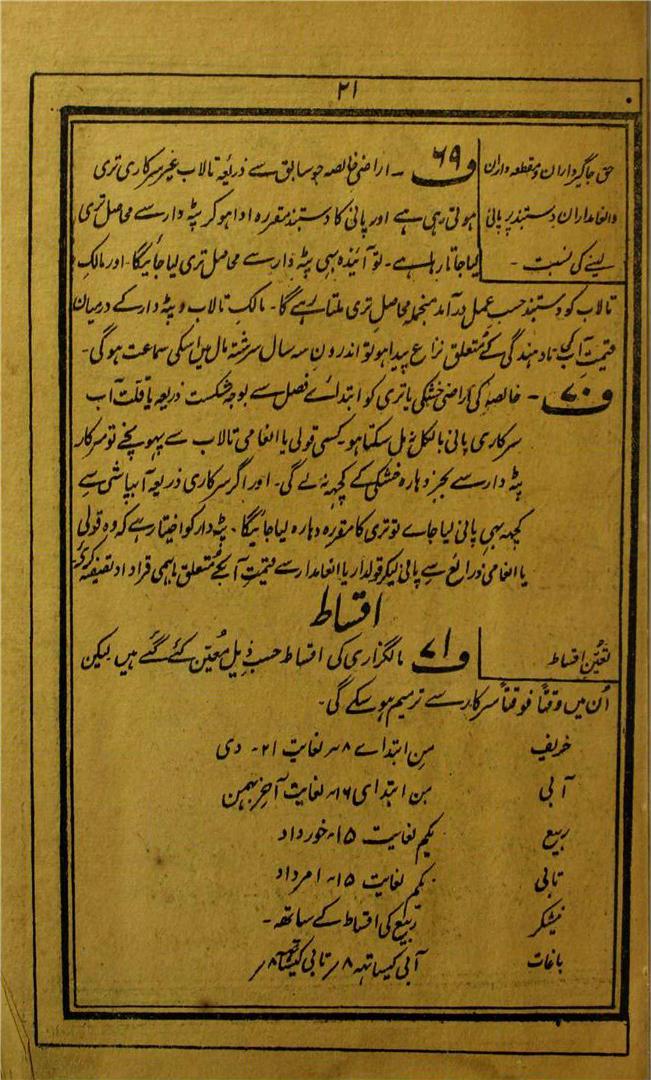 ۲۱
حق جاگیرداران و مقطعہ داران
و انعامداران دستبند پر پانی
لینے کی نسبت -
ف ۶۹ - اراضی خالصہ جو سابق سے ذریعہ تالاب غیر سرکاری تری
ہوتی رہی ہے اور پانی کا دستبند مقررہ ادا ہوکر پٹہ دار سے محاصل تری
لیا جاتا رہا ہے - تو آئندہ بہی پٹہ دار سے محاصل تری لیا جائیگا - اور مالک
تالاب کو دستبند حسب عمل درآمد منجملہ محاصل تری ملتا رہے گا - مالک تالاب و پٹہ دار کے درمیان
قیمت آب کی نادہندگی کے متعلق نزاع پیدا ہو تو اندرون سہ سال سررشتہ مال میں اسکی سماعت ہوگی -
ف ۷۰ - خالصہ کی اراضی خشکی یا تری کو ابتدائے فصل سے بوجہ شکست ذریعہ یا قلت آب
سرکاری پانی بالکل نہ مل سکتا ہو - کسی قولی یا انعامی تالاب سے پہونچے تو سرکار
پٹہ دار سے بجز دہارہ خشکی کے کچہہ نہ لے گی - اور اگر سرکاری ذریعہ آبپاشی سے
کچہہ بہی پانی لیا جاے تو تری کا مقررہ دہارہ لیا جائیگا - پٹہ دار کو اختیار ہے کہ وہ قولی
یا انعامی ذرائع سے پانی لیکر قولدار یا انعامدار سے قیمت آب کے متعلق باہمی قرارداد تصفیہ کرلے
اقساط
تعین اقساط
ف ۷۱ - مالگزاری کی اقساط حسب ذیل معین کئے گئے ہیں لیکن
اُن میں وقتاً فوقتاً سرکار سے ترمیم ہوسکے گی -
خریف من ابتداے ۸ لغایت ۲۱ - دی
آبی من ابتدای ۱۶ لغایت آخر بہمن
ربیع یکم لغایت ۱۵ خورداد
تابی یکم لغایت ۱۵ امرداد
نیشکر ربیع کی اقساط کے ساتھہ -
باغات آبی کیساتہہ ۸ / تابی کیساتہہ ۸ /